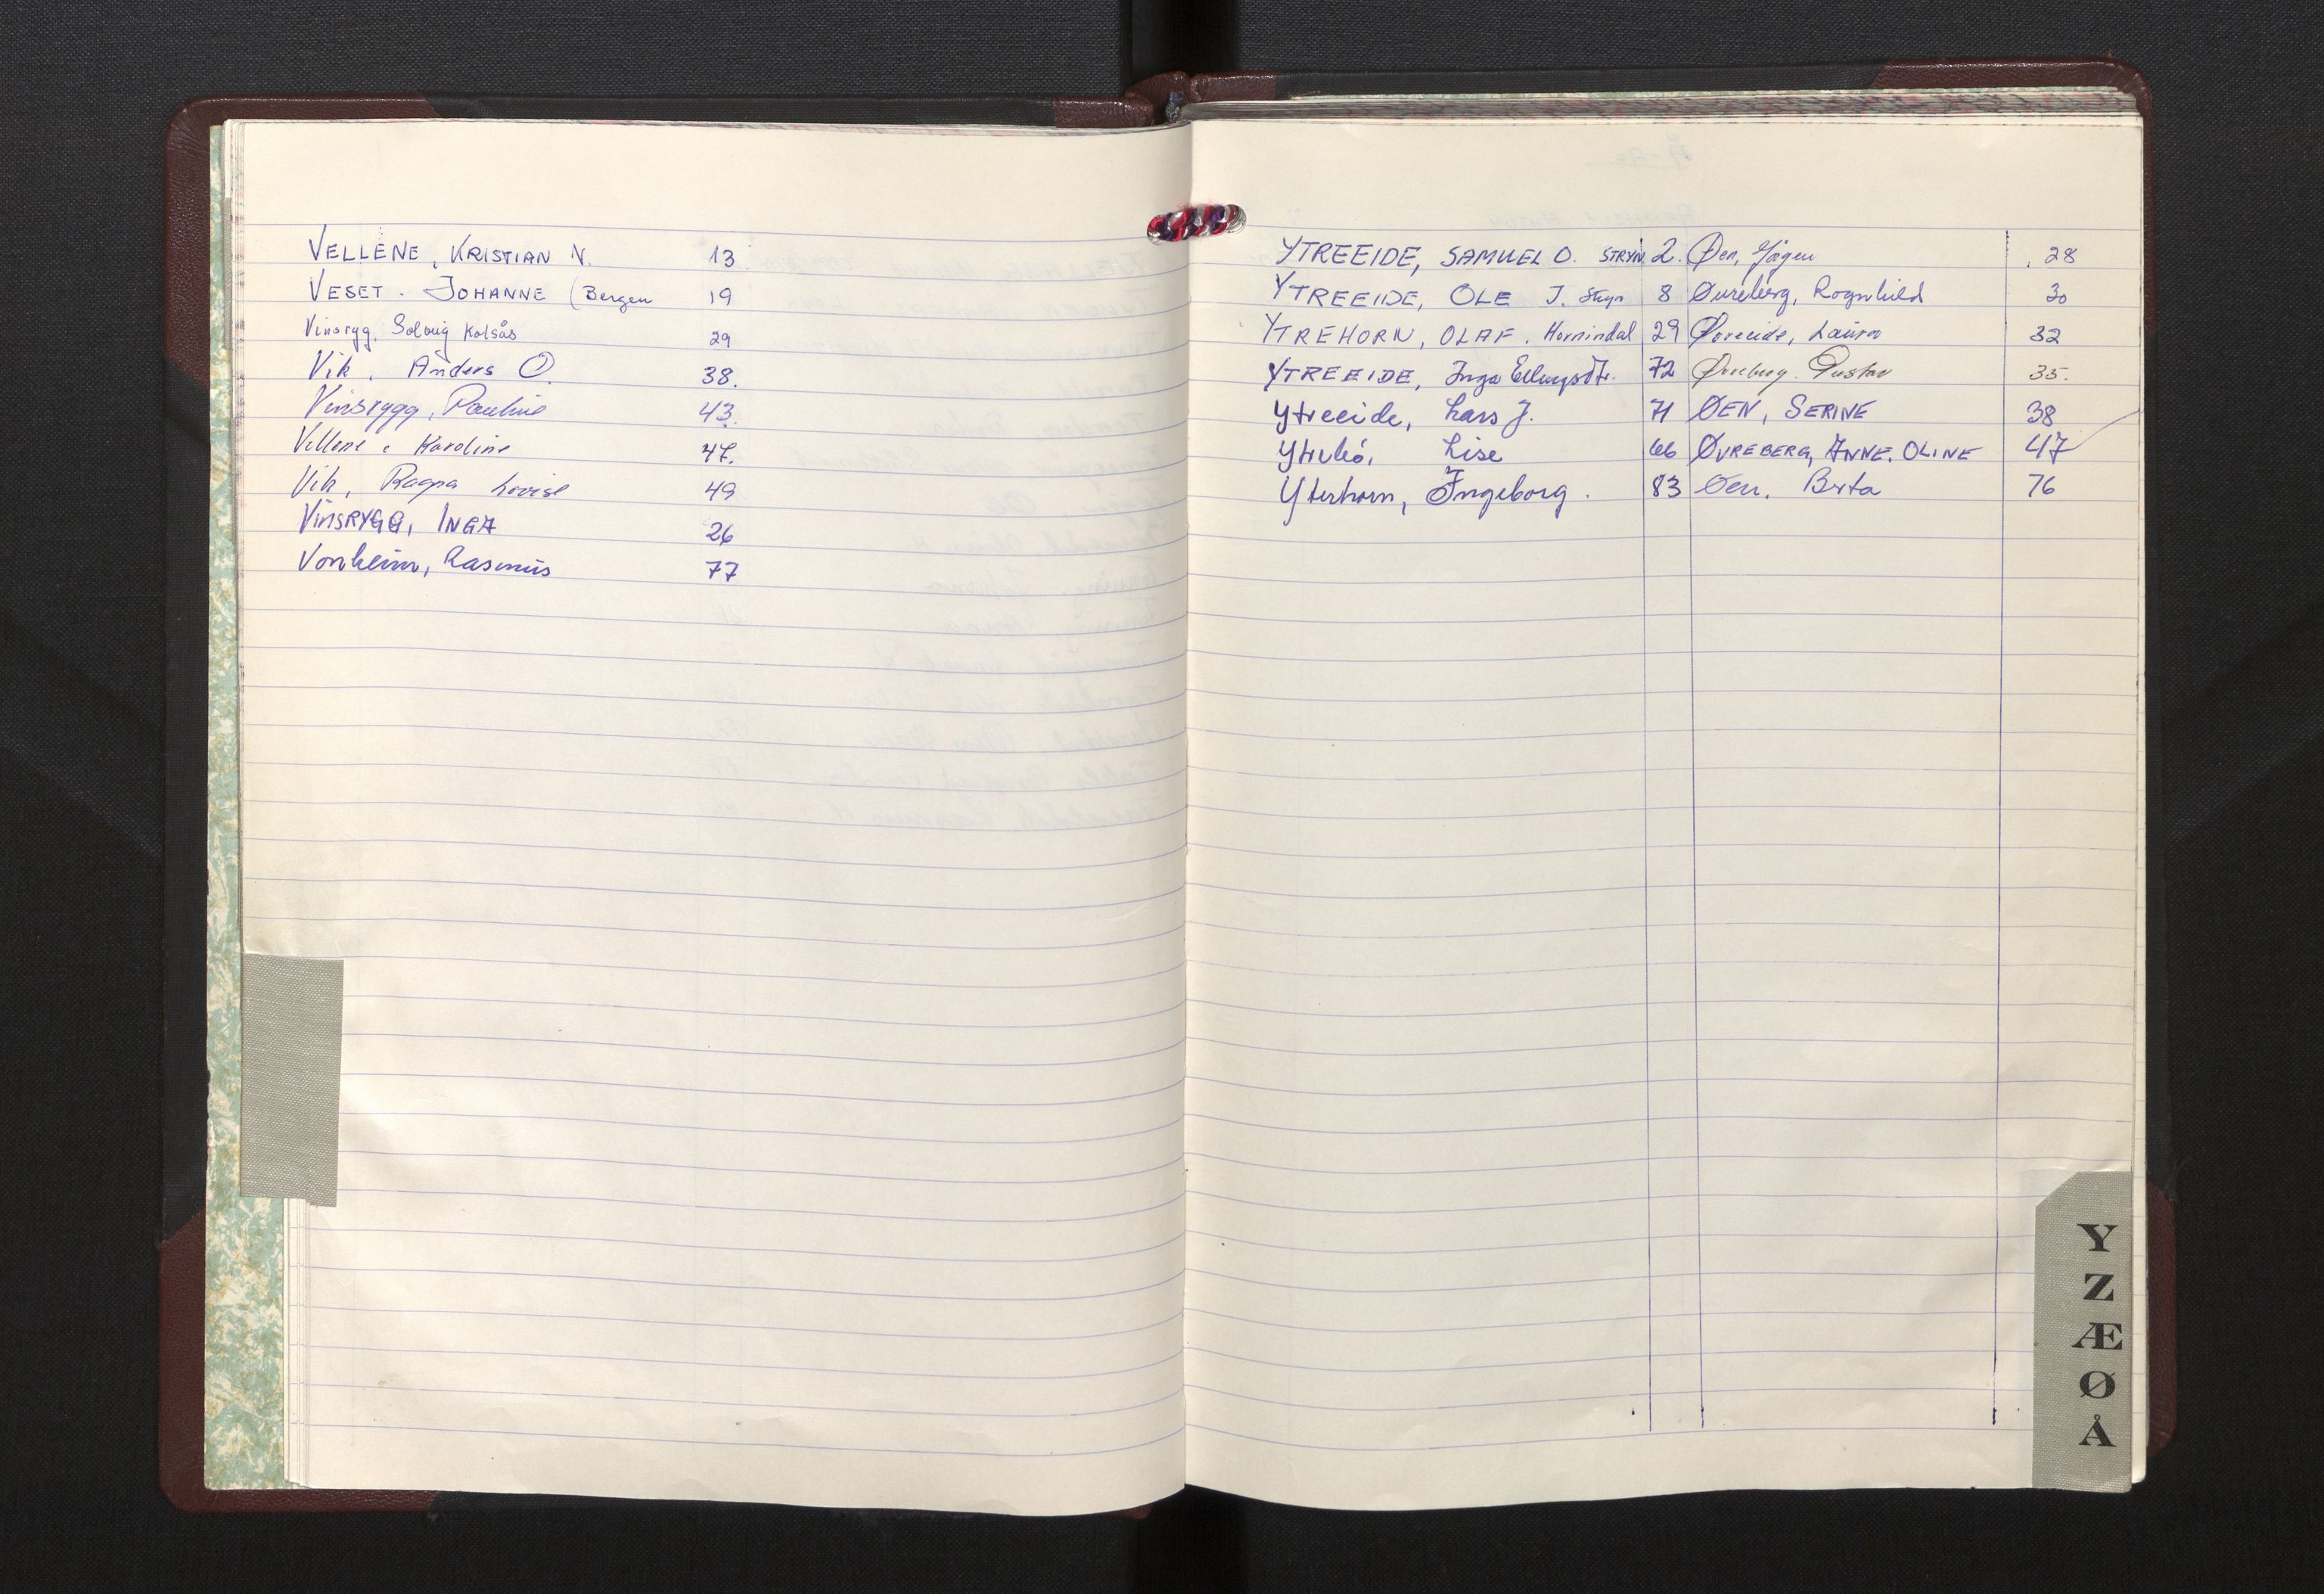 VELLENE, KRISTIAN N. 13
VESET. JOHANNE (Bergen 19
Vinsrygg, Solveig Kolsås 29
Vik, Anders O. 38.
Vinsrygg, Pauline 43.
Vellene, Karoline 47.
Vik, Ragna Lovise 49
VINSRYGG, INGA 26
Vonheim, Rasmus 77
YTREEIDE, SAMUEL O. STRYN. 2. Øen, Jögen 28
YTREEIDE, OLE J. Stryn 8 Øvreberg, Ragnhild 30
YTREHORN, OLAF. Hornindal 29 Øvreeide, Laura 32
YTREEIDE, Inga Ellingsdtr. 72 Øvreberg. Gustav 35.
Ytreeide, Lars J. 71 ØEN, SERINE 38
Lise 66 ØVREBERG, ANNE. OLINE 47
Yterhorn, Ingeborg. 83 Øen. Brta 76
Y
Z
Æ
Ø
Å